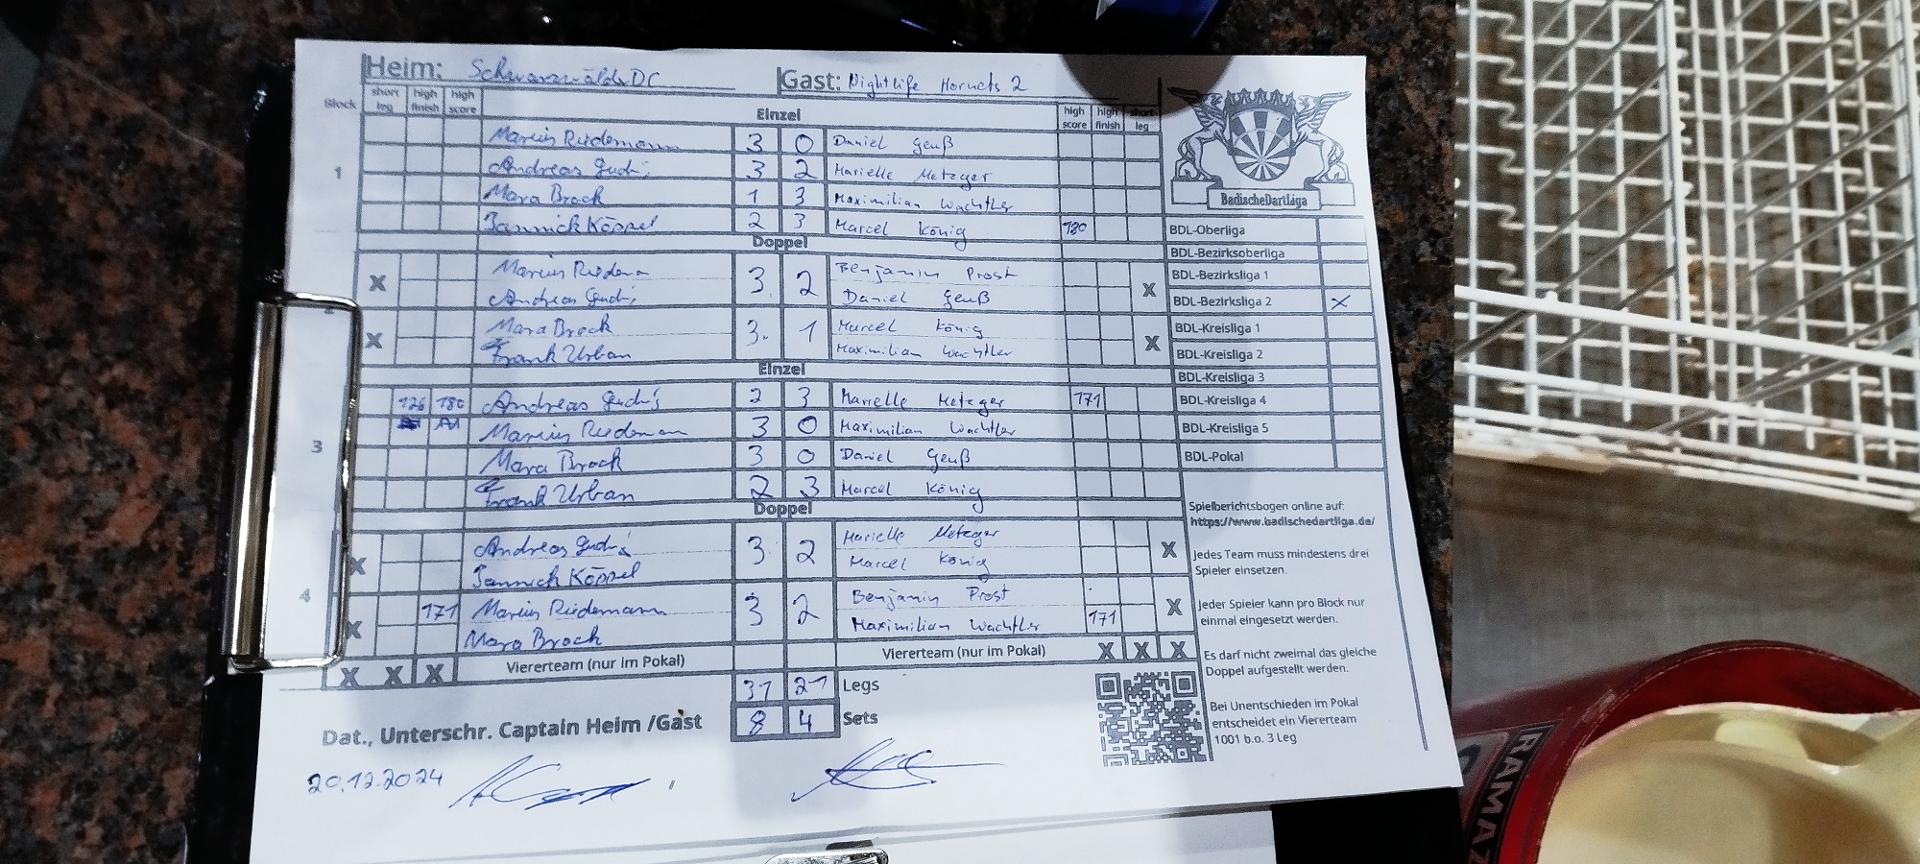 Heim: Schwarzwälder DC Gast: Nightlife Hornets 2
Block short leg high finish high score Einzel high score high finish short leg
1
Marius Riedemann 3 0 Daniel Genß
Andreas 3 2 Marielle Metzger
Mara Brock 1 3 Maximilian Wachtler
Jannick Köppel 2 3 Marcel König 180
Doppel
X Marius Riedema 3 2 Benjamin Prost X
Andreas Daniel Genß
X Mara Brock 3 1 Marcel König X
Frank Urban Maximilian Wachtler
Einzel
3
126 180 Andreas 2 3 Marielle Metzger 171
Marius Riedeman 3 0 Maximilian Wachtler
Mara Brock 3 0 Daniel Genß
Frank Urban 2 3 Marcel König
Doppel
4
X Andreas 3 2 Marielle Metzger X
Jannick Köppel Marcel König
X 171 Marius Riedemann 3 2 Benjamin Prost X
Mara Brock Maximilian Wachtler 171
X X X Viererteam (nur im Pokal) Viererteam (nur im Pokal) X X X
31 21 Legs
8 4 Sets
Dat., Unterschr. Captain Heim /Gast
20.12.2024
BadischeDartLiga
BDL-Oberliga
BDL-Bezirksoberliga
BDL-Bezirksliga 1
BDL-Bezirksliga 2 X
BDL-Kreisliga 1
BDL-Kreisliga 2
BDL-Kreisliga 3
BDL-Kreisliga 4
BDL-Kreisliga 5
BDL-Pokal
Spielberichtsbogen online auf:
https://www.badischedartliga.de/
Jedes Team muss mindestens drei
Spieler einsetzen.
Jeder Spieler kann pro Block nur
einmal eingesetzt werden.
Es darf nicht zweimal das gleiche
Doppel aufgestellt werden.
Bei Unentschieden im Pokal
entscheidet ein Viererteam
1001 b.o. 3 Leg